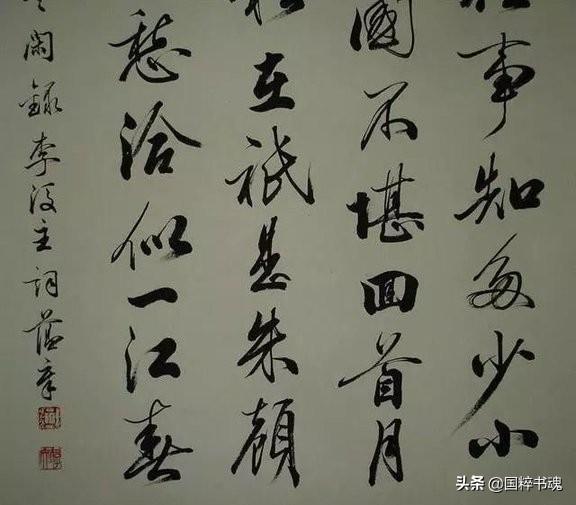 往事知多少小
國不堪回首月
猶在祇是朱顏
愁洽似一江春
閑錄李後主詞
头条 @国粹书魂